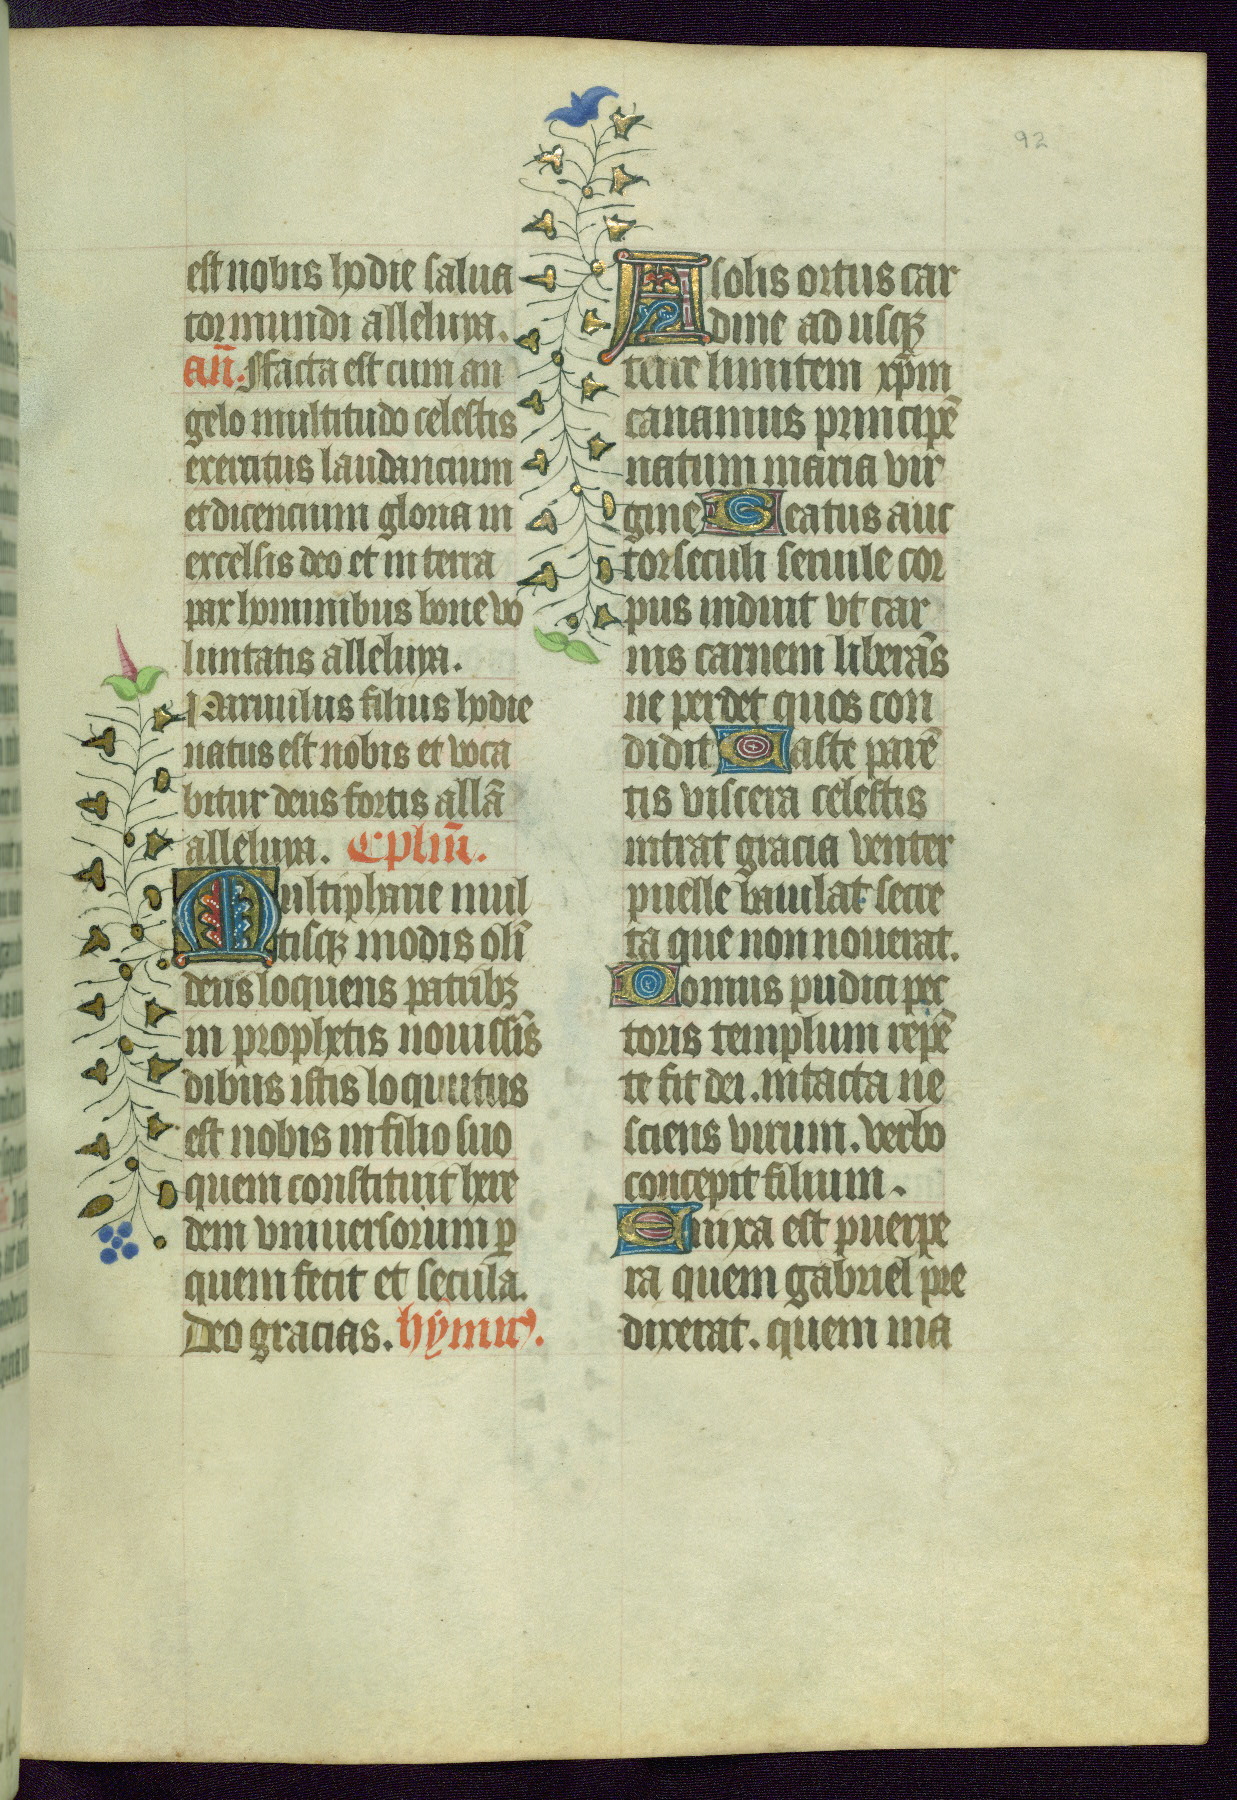 92
est nobis hodie salua
tor mundi alleluya.
añ. Ffacta est cum an
gelo multitudo celestis
exercitus laudancium
et dicencium gloria in
excelsis deo et in terra
pax hominibus bone vo
luntatis alleluya.
Paruulus filius hodie
natus est nobis et voca
bitur deus fortis allā
alleluya. Cplm̄.
Multipharie mul
tisqꝫ modis olī
deus loquens patribꝫ
in prophetis nouissīs
dibus istis loquutus
est nobis in filio suo
quem constituit here
dem vniuersorum ꝑ
quem fecit et secula.
Deo gracias. hȳmꝰ.
A solis ortus car
dine ad usqꝫ
terre limitem xp̄m
canamus principē
natum maria vir
gine Beatus auc
tor seculi seruile cor
pus induit vt car
nis carnem liberās
ne perdet quos con
didit Caste parē
tis viscera celestis
intrat gracia venter
puelle baiulat secre
ta que non nouerat.
Domus pudici pec
toris templum repē
te fit dei. intacta ne
sciens virum. verbo
concepit filium.
Enixa est puerpe
ra quem gabriel pre
dixerat. quem ma